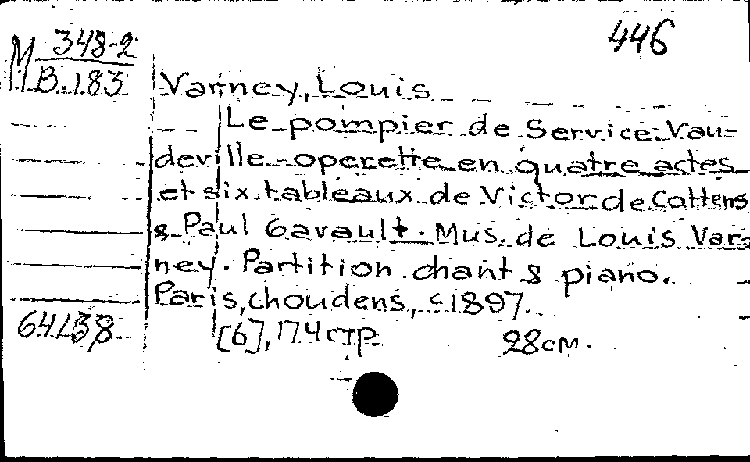 446
M 348-2
B.183
Varney, Louis
Le pompier de Service: Vau-
deville-operette en quatre actes
et six tableaux de Victor de Cottens
& Paul Gavault. Mus. de Louis Var-
ney. Partition chant & piano.
Paris, Choudens, c1897.
64138
[6], 174 стр. 28 см.